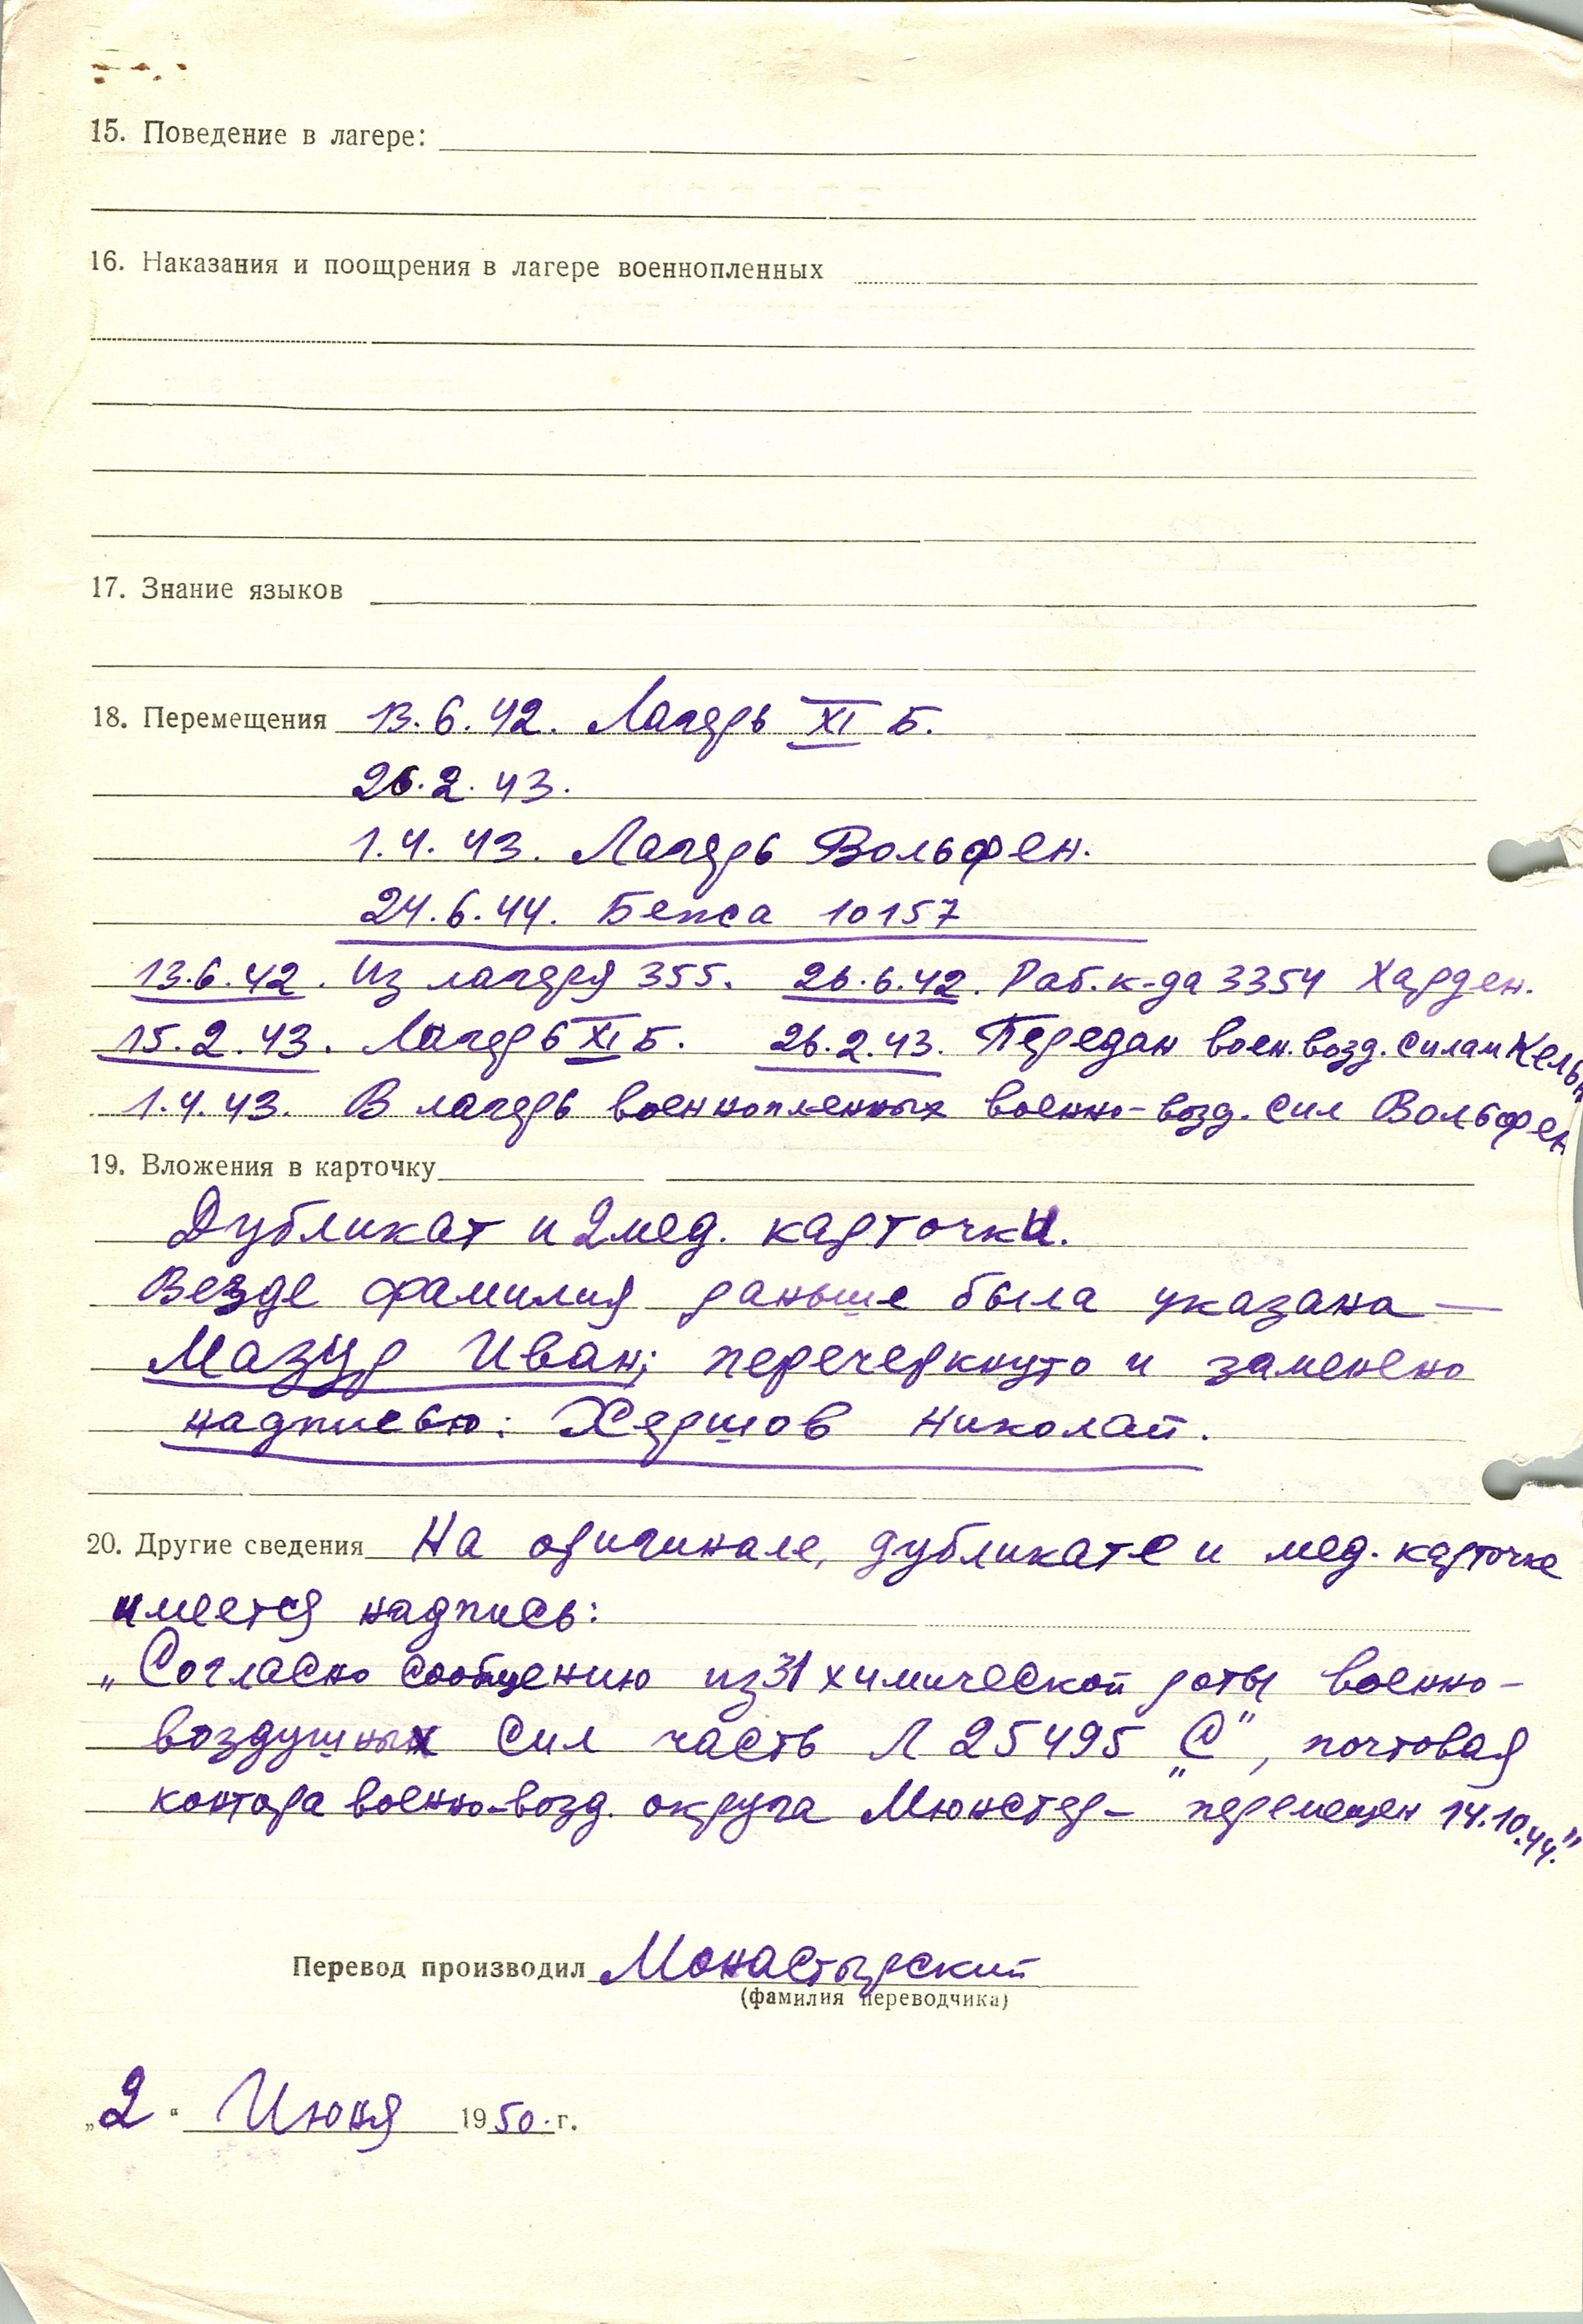 15. Поведение в лагере:
16. Наказания и поощрения в лагере военнопленных
17. Знание языков
18. Перемещения 13.6.42. Лагерь XI Б.
26.2.43.
1.4.43. Лагерь Вольфен.
24.6.44. Бепса 10157
13.6.42. Из лагеря 355. 26.6.42. Раб. к-да 3354 Харден.
15.2.43. Лагерь XI Б. 26.2.43. Передан воен. возд. силам Кельн
1.4.43. В лагерь военнопленных военно-возд. сил Вольфен
19. Вложения в карточку
Дубликат и 2 мед. карточки.
Везде фамилия раньше была указана —
Мазур Иван; перечеркнуто и заменено
надписью: Хершов Николай.
20. Другие сведения На оригинале, дубликате и мед. карточке
имеется надпись:
„Согласно сообщению из 31 химической роты военно-
воздушных сил часть Л 25495 „С", почтовая
контора военно-возд. округа Мюнстер – перемещен 14.10.44."
Перевод производил Монастырский
(фамилия переводчика)
„2" Июня 1950.г.